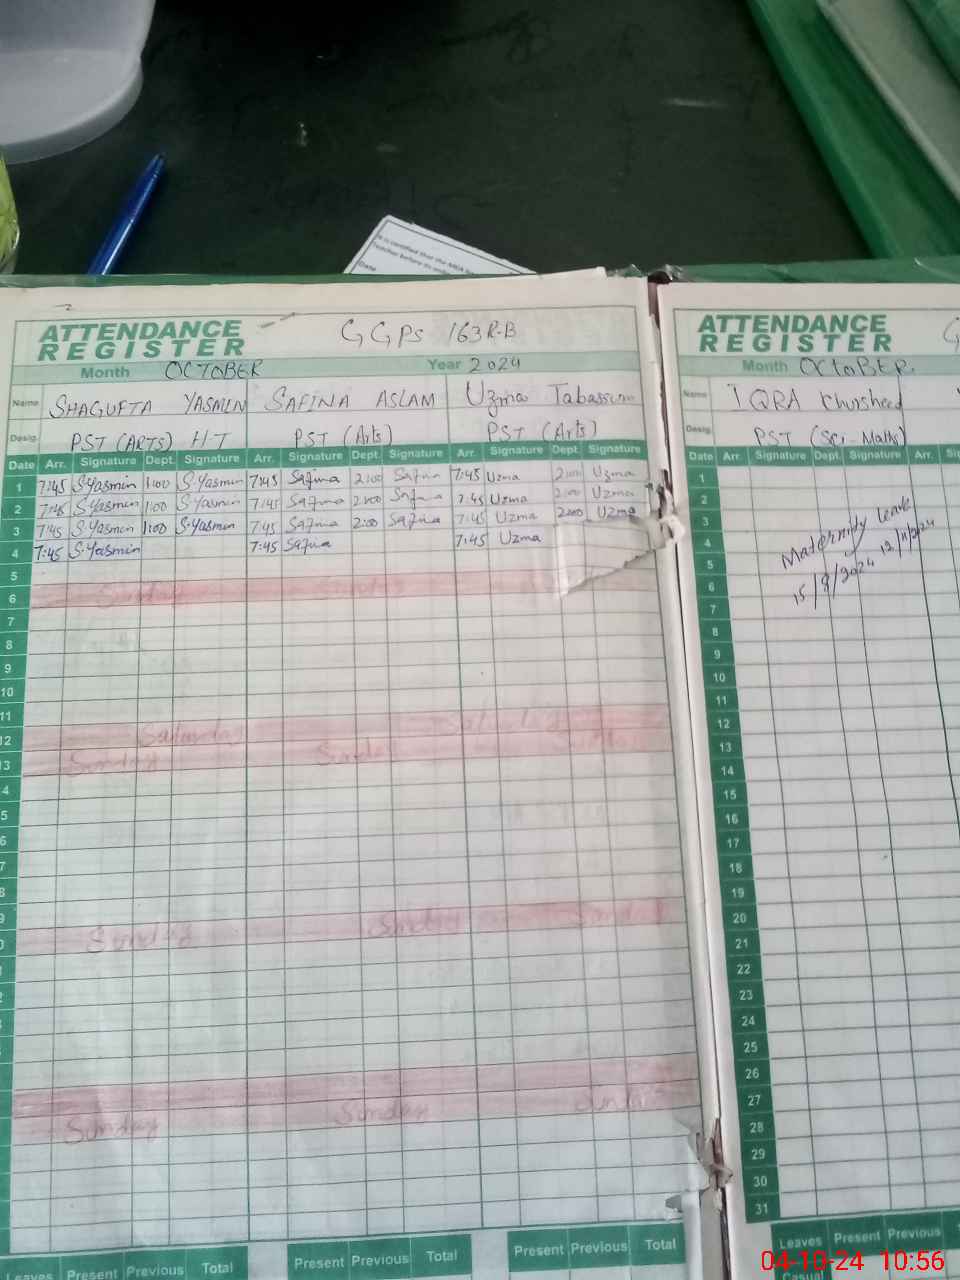 It is certified that the
Teacher before
Date
ATTENDANCE
REGISTER
GGPS 163R-B
Month OCTOBER Year 2024
Name SHAGUFTA YASMIN SAFINA ASLAM Uzma Tabassum
Desig. PST (ARTS) H-T PST (Arts) PST (Arts)
Date Arr. Signature Dept. Signature Arr. Signature Dept. Signature Arr. Signature Dept. Signature
1 7:45 S.Yasmin 1:00 S.Yasmin 7:45 Safina 2:00 Safina 7:45 Uzma 2:00 Uzma
2 7:45 S.Yasmin 1:00 S.Yasmin 7:45 Safina 2:00 Safina 7:45 Uzma 2:00 Uzma
3 7:45 S.Yasmin 1:00 S.Yasmin 7:45 Safina 2:00 Safina 7:45 Uzma 2:00 Uzma
4 7:45 S.Yasmin 7:45 Safina 7:45 Uzma
5
6 Sunday Sunday
7
8
9
10
11
12 Saturday Saturday
13 Sunday Sunday Sunday
4
5
6
7
8
9
0 Sunday Sunday Sunday
Sunday Sunday Sunday
Leaves Present Previous Total Present Previous Total Present Previous Total
ATTENDANCE
REGISTER
G
Month OCTOBER
Name IQRA Khursheed
Desig. PST (Sci-Maths)
Date Arr. Signature Dept. Signature Arr.
1
2
3
4 Maternity leave
5
6 15/8/2024 12/11/2024
7
8
9
10
11
12
13
14
15
16
17
18
19
20
21
22
23
24
25
26
27
28
29
30
31
Leaves Present Previous Total
Casual
04-10-24 10:56